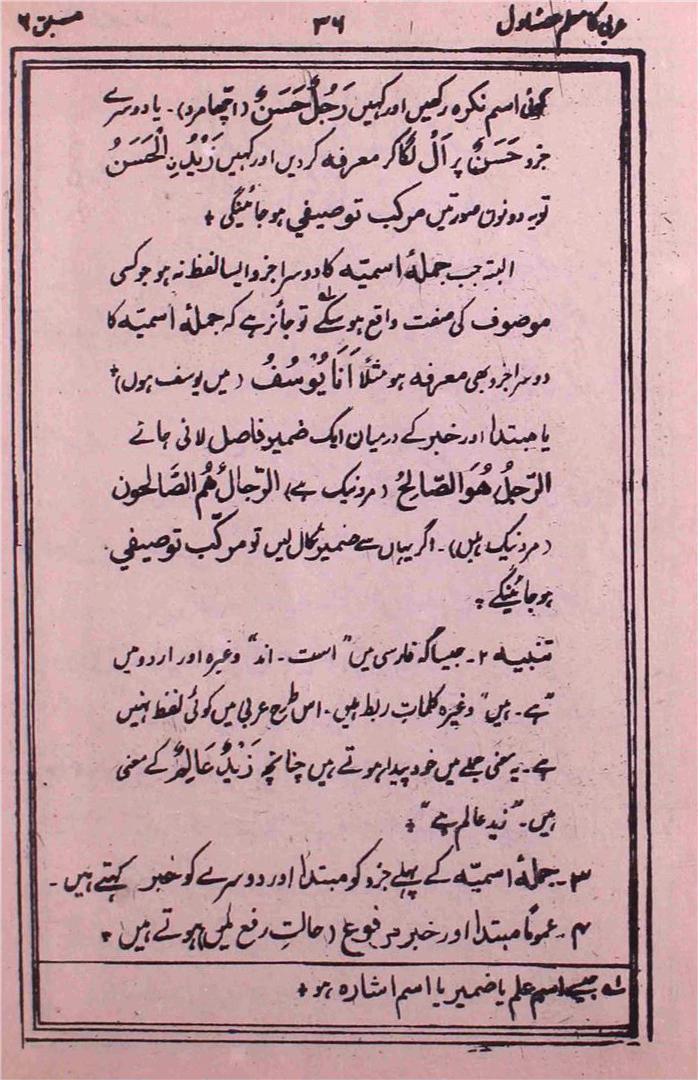 عربی کا معلم حصۂ اول ۳۶ سبق ۶
کوئی اسم نکرہ رکھیں اور کہیں رَجُلٌ حَسَنٌ (اچھا مرد)۔ یا دوسرے
جزو حَسَنٌ پر اَلْ لگا کر معرفہ کر دیں اور کہیں زَیْدُ نِ الْحَسَنُ
تو یہ دونوں صورتیں مرکب توصیفي ہو جائینگی +
البتہ جب جملۂ اسمیّہ کا دوسرا جزو ایسا لفظ نہ ہو جو کسی
موصوف کی صفت واقع ہو سکے ؎۱ تو جائز ہے کہ جملۂ اسمیّہ کا
دوسرا جزو بھی معرفہ ہو مثلًا اَنَا یُوْسُفُ (میں یوسف ہوں)+
یا مبتدا اور خبر کے درمیان ایک ضمیر فاصل لائی جائے
الرّجلُ هُوَ الصّالِحُ (مرد نیک ہے) الرّجالُ هُم الصَّالحون
(مرد نیک ہیں)۔ اگر یہاں سے ضمیر نکال لیں تو مرکّب توصیفي
ہو جائینگے +
تنبیہ ۲۔ جیسا کہ فارسی میں "است۔ اند" وغیرہ اور اردو میں
"ہے۔ ہیں" وغیرہ کلماتِ ربط ہیں۔ اس طرح عربی میں کوئی لفظ نہیں
ہے۔ یہ معنی جملے میں خود پیدا ہوتے ہیں چنانچہ زَیْدٌ عَالِمٌ کے معنی
ہیں۔ "زید عالم ہے" +
۳۔ جملۂ اسمیّہ کے پہلے جزو کو مبتدا اور دوسرے کو خبر کہتے ہیں۔
۴۔ عمومًا مبتدا اور خبر مرفوع (حالتِ رفع میں) ہوتے ہیں +
؎۱ جیسے اسم علم یا ضمیر یا اسم اشارہ ہو +